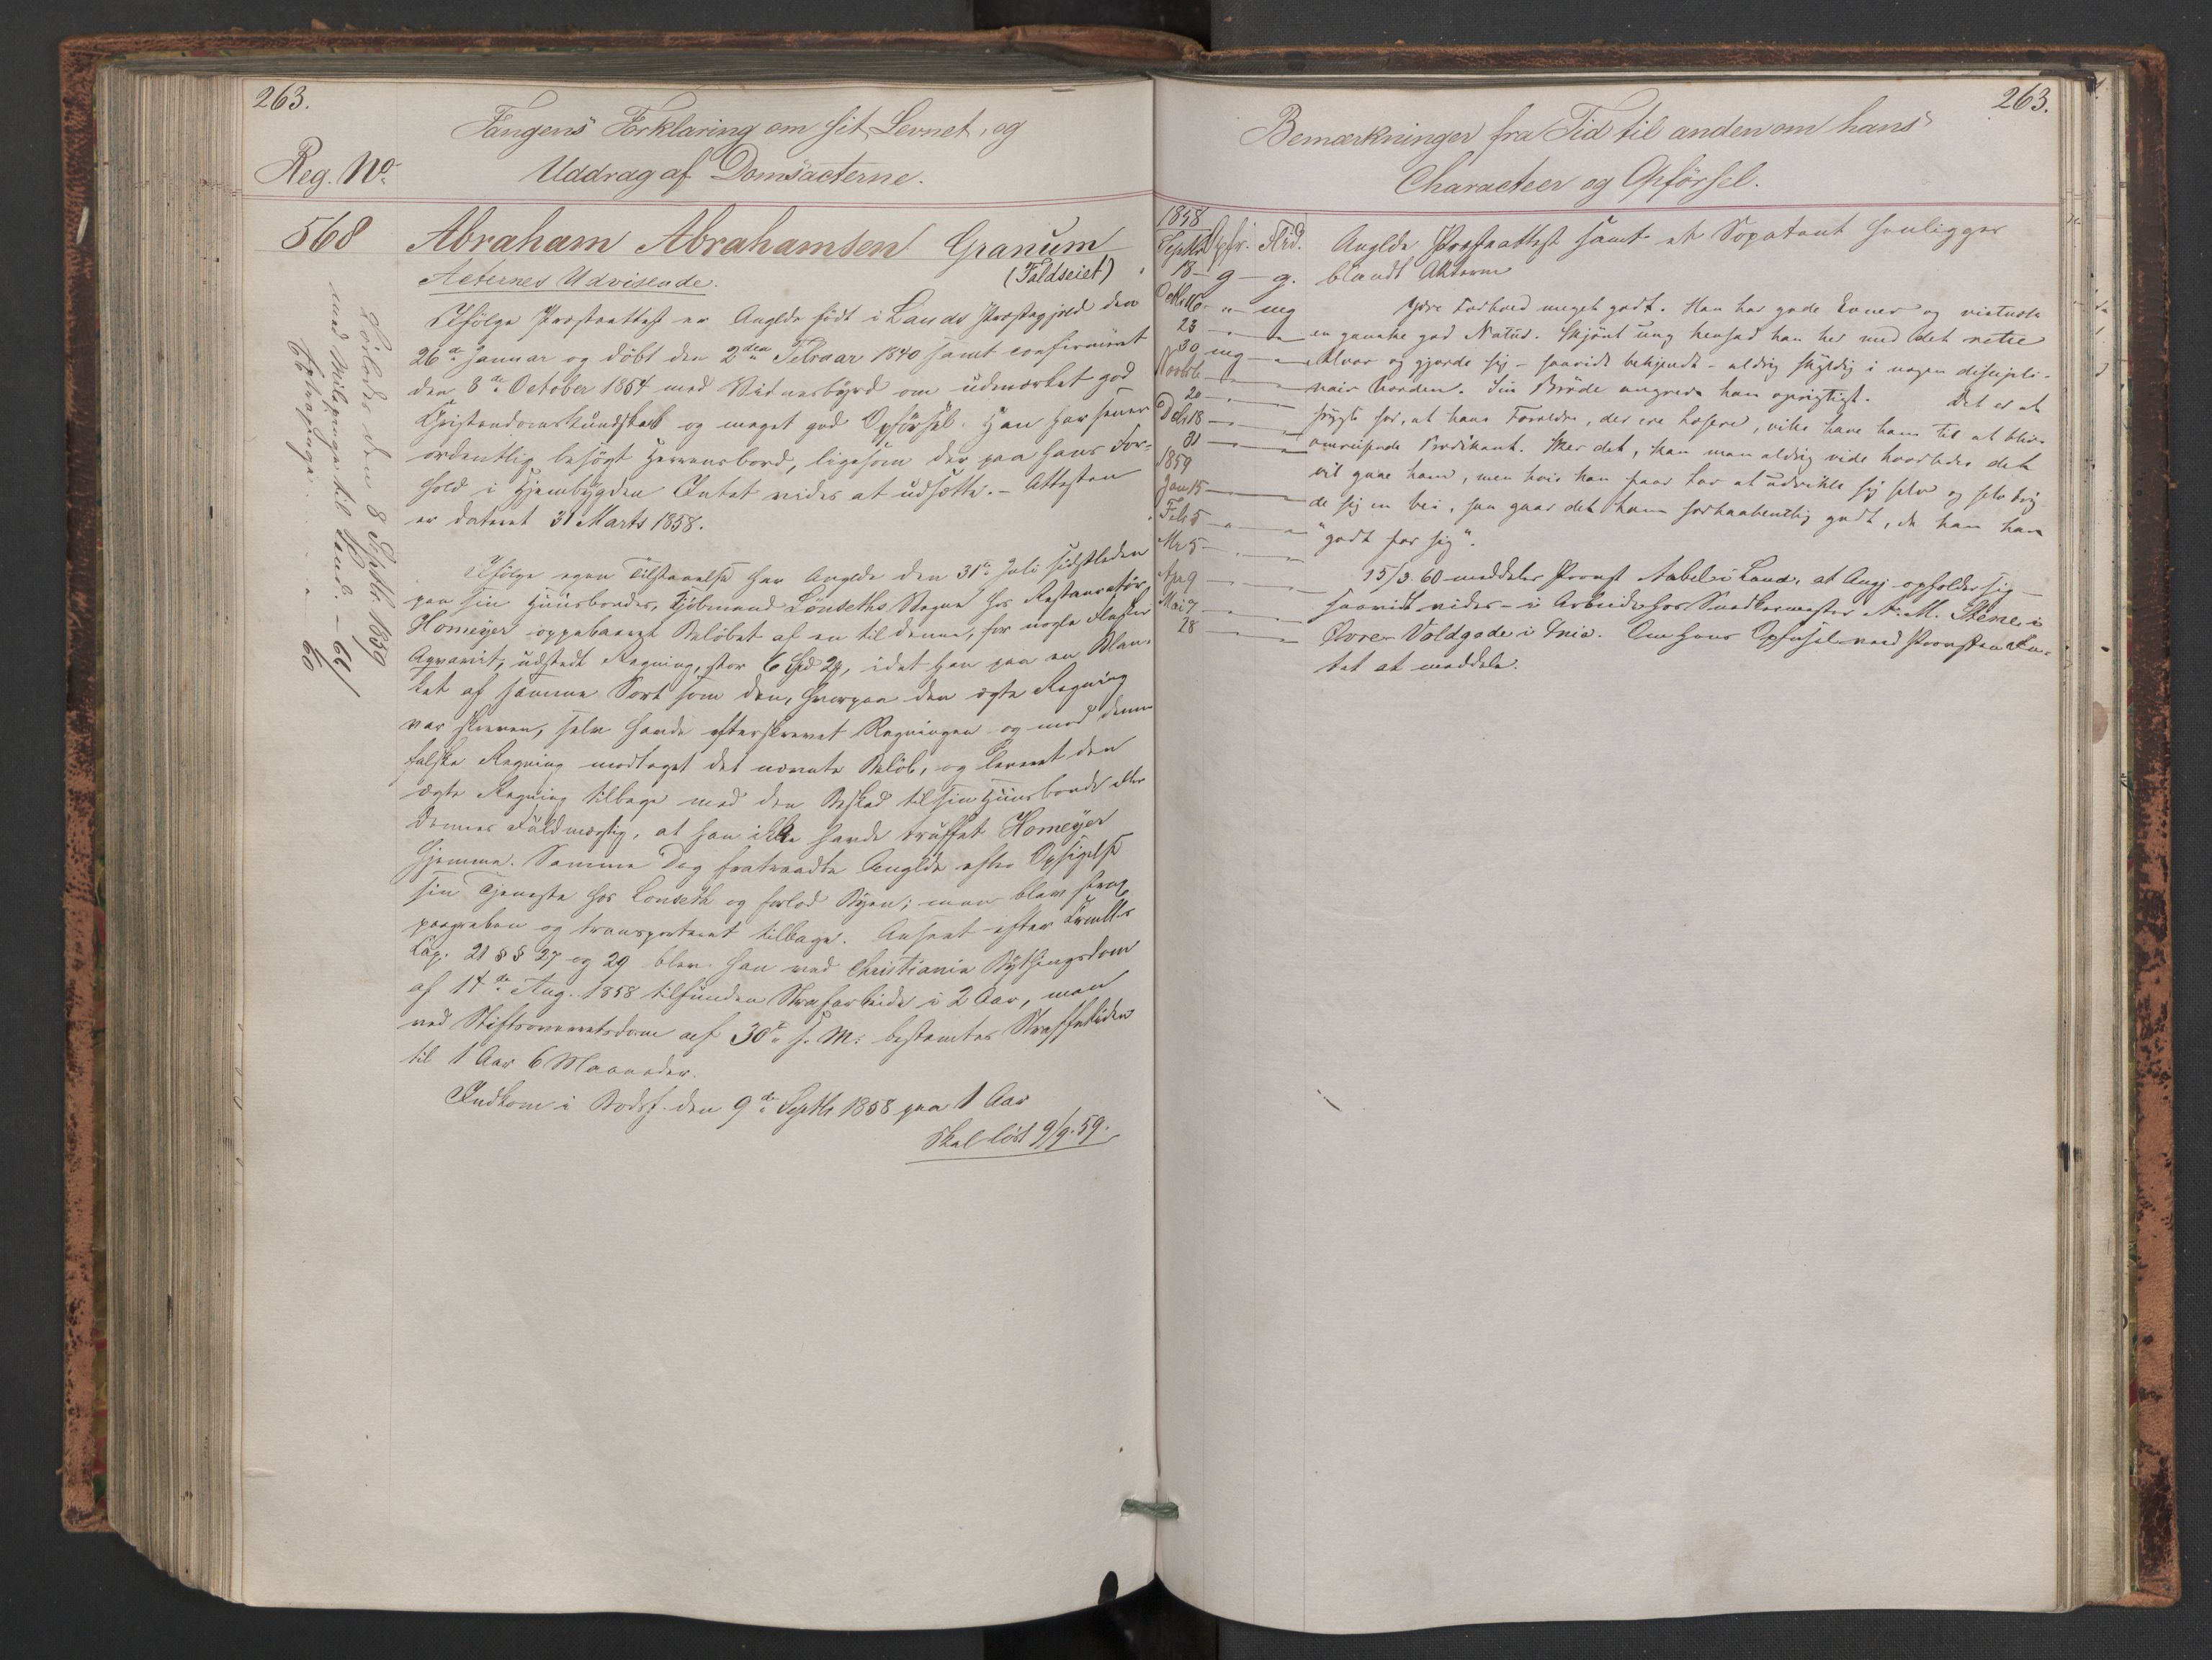 263.
Fangens Forklaring om sit Levnet, og
Uddrag af Domsacterne.
Reg. No.
568
Abraham Abrahamsen Granum
(Faldseiet)
Acternes Udvisende.
Ifölge Præsteattest er Anglde födt i Lands Præstegjeld den
26de Januar og döbt den 2den Februar 1840 samt confirmeret
den 8de October 1854 med Vidnesbyrd om udmærket god
Christendomskundskab og meget god Opförsel. Han har senere
ordentlig besögt Herrensbord, ligesom der paa hans For-
hold i Hjembygden Intet vides at udsætte. - Attesten
er dateret 31 Marts 1858.
Ifölge egen Tilstaaelse har Anglde den 31te Juli sidstleden
paa sin Huusbondes, Kjöbmand Lönseths Vegne hos Restauratör
Homeyer oppebaaret Belöbet af en til denne, for nogle Flasker
Aqvavit, udstedt Regning, stor 6 Spd 24, idet han paa en Blan-
ket af samme Sort som den, hvorpaa den ægte Regning
var skreven, selv havde efterskrevet Regningen og mod denne
falske Regning modtaget det nævnte Belöb, og leveret den
ægte Regning tilbage med den Besked til sin Huusbonde eller
dennes Fuldmægtig, at han ikke havde truffet Homeyer
hjemme. Samme Dag fratraadte Anglde efter Opsigelse
sin Tjeneste hos Lonseth og forlod Byen; men blev strax
paagreben og transporteret tilbage. Anseet efter Crimll's
Cap. 21 §§ 27 og 29 blev han ved Christiania Bythingsdom
af 14de Aug. 1858 tilfunden Strafarbeide i 2 Aar, men
ved Stiftsoverretsdom af 30te s. M. bestemtes Straffetiden
til 1 Aar 6 Maaneder.
Indkom i Bodsf. den 9de Septbr 1858 paa 1 Aar
Skal löst 9/9.59.
Löslodes den 8 Septbr 1859
med Miilepenge til Land.
263.
Bemærkninger fra Tid til anden om hans
Characteer og Opförsel.
1858
Septbr Opfr. Flid.
18 - g - g.
Octbr 16 - " - mg
23
30 mg
Novbr 6
20
Decbr 18
31
1859
Jan 15
Feb 5
Mr 5
Apr 9
Mai 7
28
Anglde Præsteattest samt et Sopatent henligger
blandt Akterne
Ydre Forhold meget godt. Han har gode Evner og
en ganske god Natur. Skjönt ung hensad han her med det rette
Alvor og gjorde sig - saavidt bekjendt - aldrig skyldig i nogen discipli-
nair Uorden. Sin Bröde angrede han oprigtigt. Det er at
frygte for, at hans Forældre, der ere Læsere, ville have ham til at blive
omreisende Prædikant. Sker det, kan man aldrig vide hvorledes det
vil gaae ham, men hvis han faar Lov at udvikle sig selv og selv bry-
de sig en Vei, saa gaar det ham forhaabentlig godt, da han har
"godt for sig".
15/3 60 meddeler Provst Aabel i Land, at Angj. opholder sig -
saavidt vides - i Arbeide hos Snedkermester N. M. Stene i
Övre Voldgade i Xnia. Om hans Opförsel veed Provsten In-
tet at meddele.